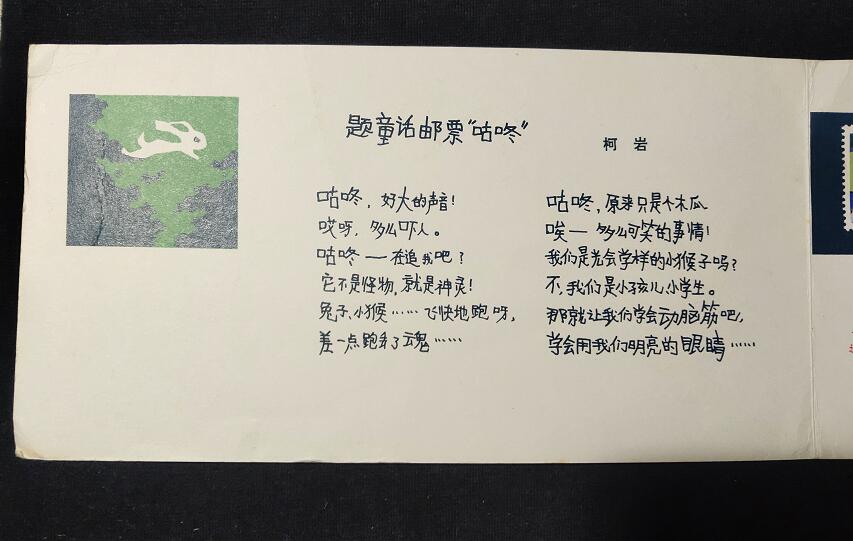 题童话邮票“咕咚”
柯岩
咕咚，好大的声音！
哎呀，多么吓人。
咕咚——在追我吧？
它不是怪物，就是神灵！
兔子、小猴……飞快地跑呀，
差一点跑丢了魂……
咕咚，原来只是个木瓜
唉——多么可笑的事情！
我们是光会学样的小猴子吗？
不，我们是小孩儿，小学生。
那就让我们学会动脑筋吧，
学会用我们明亮的眼睛……